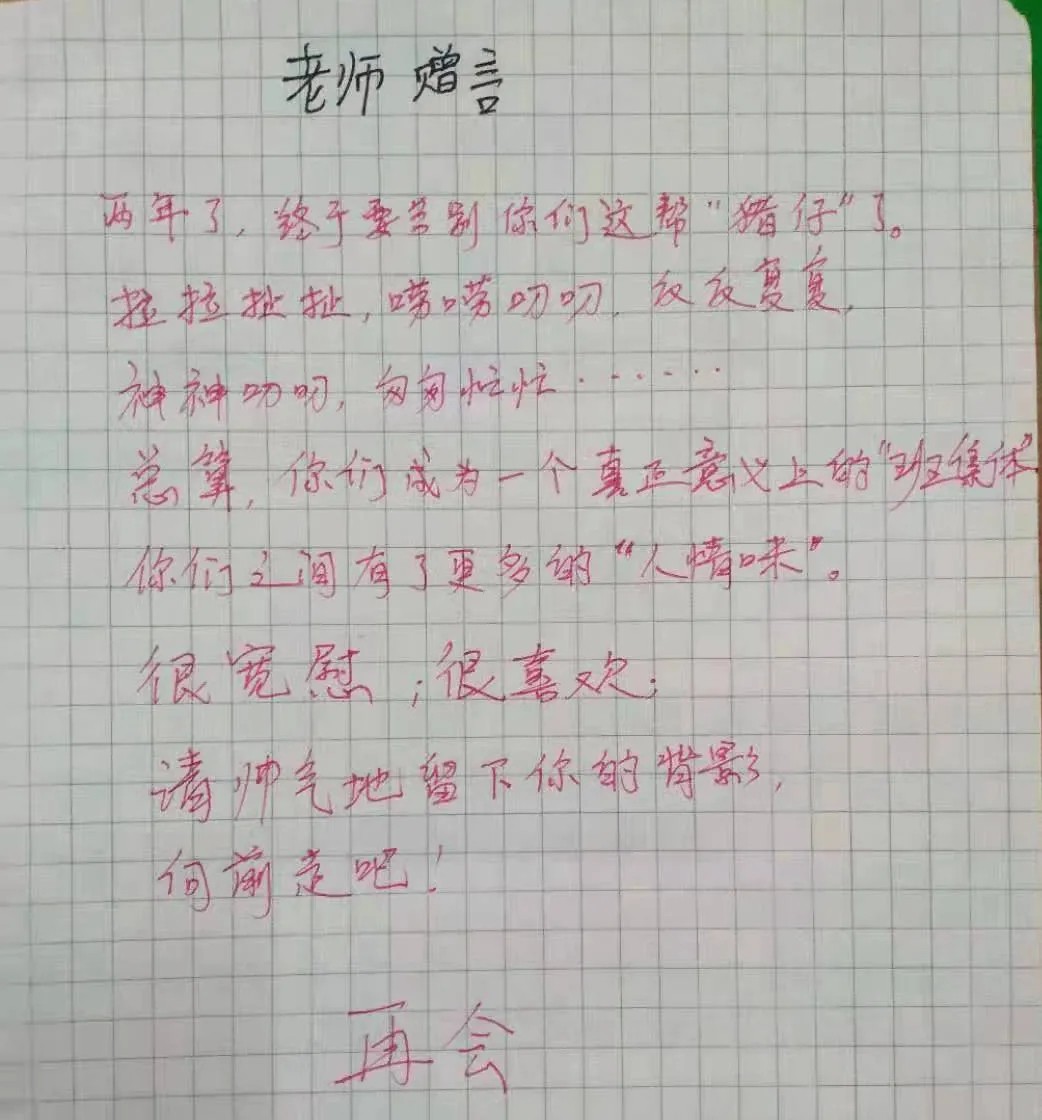 老师 赠言
两年了，终于要告别你们这帮“猪仔”了。
拉拉扯扯，唠唠叨叨，反反复复，
神神叨叨，匆匆忙忙······
总算，你们成为一个真正意义上的“班集体”
你们之间有了更多的“人情味”。
很宽慰；很喜欢；
请帅气地留下你的背影，
向前走吧！
再会